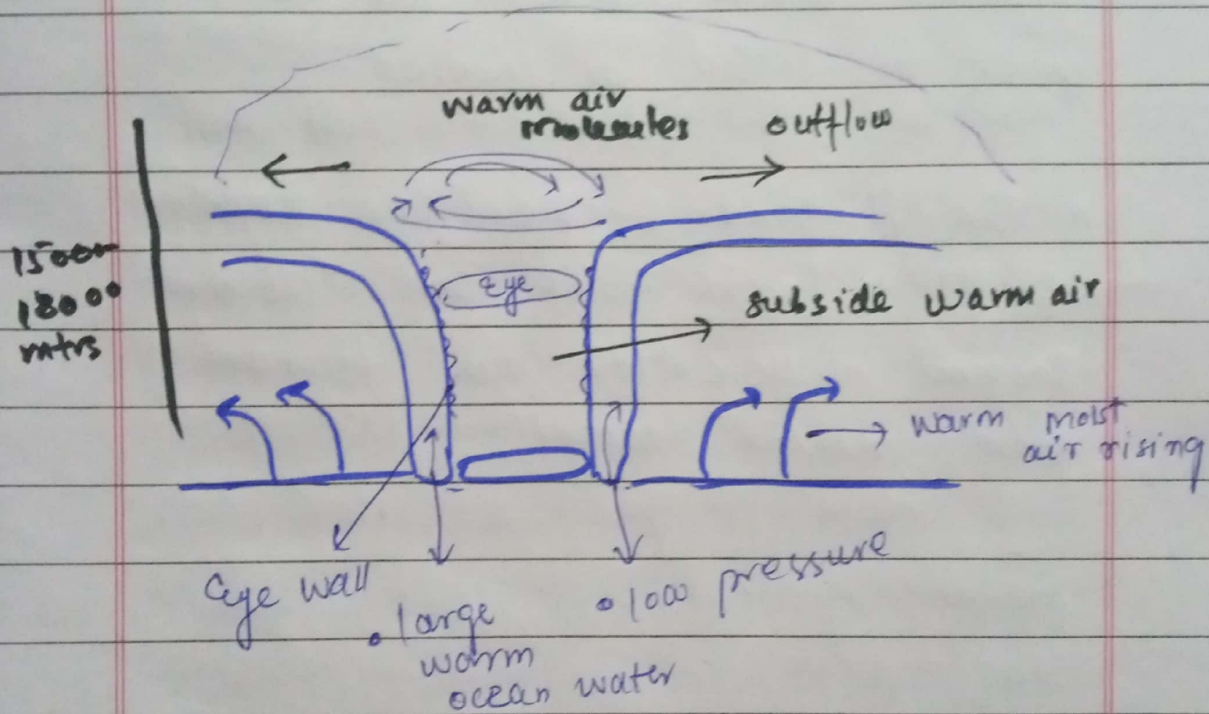 warm air
molecules
outflow
1500m
18000
mtrs
Eye
subside warm air
warm moist
air rising
Eye wall
• large
warm
ocean water
• low pressure